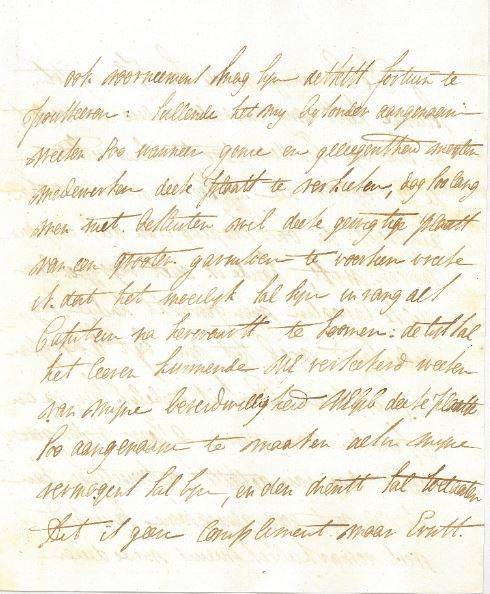 ook voorneemens mag zijn deselfs fortuin te
profiteeren: sullende het my bysonder aangenaam
weesen soo wanneer genie en geleegentheid moogten
medewerken deese plaats te verkiesen, dog soo lang
men niet besluiten wil deese gewigtige plaats
van een grooten garnisoen te voorsien vreese
ik dat het moeilyk sal syn in rang als
Capitein na te koomen: de tyt sal
het leeren kunnende verseekerd weesen
van myne bereidwilligheid deese plaats
soo aangenaam te maaken als in myne
vermogens sal syn, en den dienst sal toelaaten
Dit is geen Compliment maar